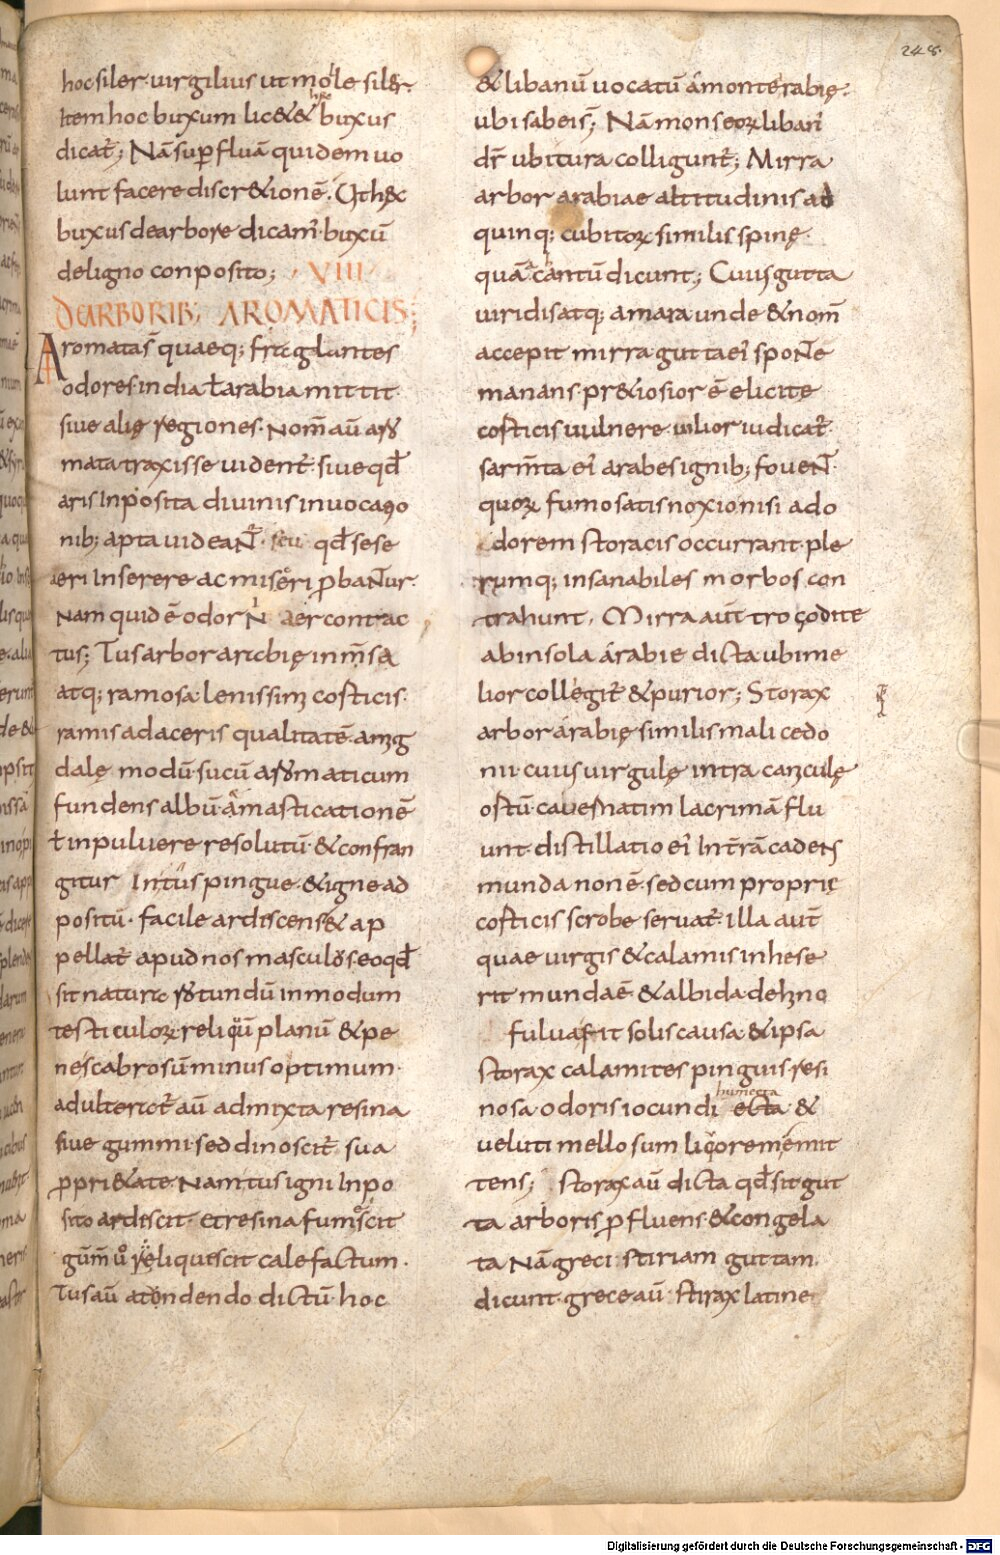 248.
hoc siler· uirgilius ut mole siler·
Item hoc buxum lic& & hęc buxus
dicat̄; Nā suꝑfluā quidem uo
lunt facere discr&ionē· Qt h&c
buxus de arbore dicam̄· buxū
de ligno conposito; · VIII·
DE ARBORIB; AROMATICIS;
Aromata s̄ quaeq; fraglantes
odores· india ł arabia mittit·
siue alię regiones· Nom̄ aū aro
mata traxisse uident̄· siue qd̄
aris Inposita diuinis inuocatio
nib; apta uideaNt̄· seu qd̄ sese
aeri Inserere ac misceri ꝓbaNtur·
Nam quid ē odor N aer contrac
tus; Tus arbor arabię inm̄sa
atq; ramosa· lenissimi costicis·
ramis ad aceris qualitatē· amig
dalę modū· sucū aromaticum
fundens albū· a masticationē
ł in puluere resolutū· & confran
gitur Intus pingue· & igne ad
positū· facile ardiscens· & ap
pellat̄ apud nos masculos· eo qd̄
sit natura rotundū in modum
testiculoꝝ· reliqū planū & pe
ne scabrosū minus optimum·
adulterat̄ aū admixta resina
siue gummi· sed dinoscit̄ sua
ꝓpri&ate· Nam tus igni Inpo
sito ardiscit· et resina fumescit
gūm̄ uº reliquiscit calefactum·
Tus aū a tondendo dictū· hoc
& libanū uocatū a monte rabię·
ubi sabeis; Nā mons eoꝝ liban̄
dr̄ ubi tura colligunt̄; Mirra
arbor arabiae altitudinis ad
quinq; cubitoꝝ similis spinę·
quā acantū dicunt; Cuius gutta
uiridis atq; amara unde & nom̄
accepit mirra· gutta ei spoNte
manans· pr&iosior ē elicitę
costicis uulnere· uilior iudicat̄·
sarm̄ta ei arabes ignib; foueNt̄·
quoꝝ fumo satis noxio nisi ad o
dorem storacis occurrant· ple
rumq; insanabiles morbos con
trahunt· Mirra aūt troçodite
ab insola arabię dicta ubi me
lior collegit̄ & purior; Storax
arbor arabię similis mali cedo
nii· cuius uirgulę intra caniculę
ostū· cauernatim lacrimā flu
unt· distillatio ei In tr̄ā cadeNs
munda non ē· sed cum proprię
costicis scrobe seruat̄· illa aūt
quae uirgis & calamis inhese
rit munda ē & albida dehinc
fulua fit solis causa· & ipsa
storax calamites pinguis· resi
nosa odoris iocundi humecta &
ueluti mellosum liqorem emit
tens; Storax aū dicta qd̄ sit gut
ta arboris ꝓfluens· & congela
ta Nā greci stiriam guttam
dicunt· grece aū stirax latine
Digitalisierung gefördert durch die Deutsche Forschungsgemeinschaft - DFG